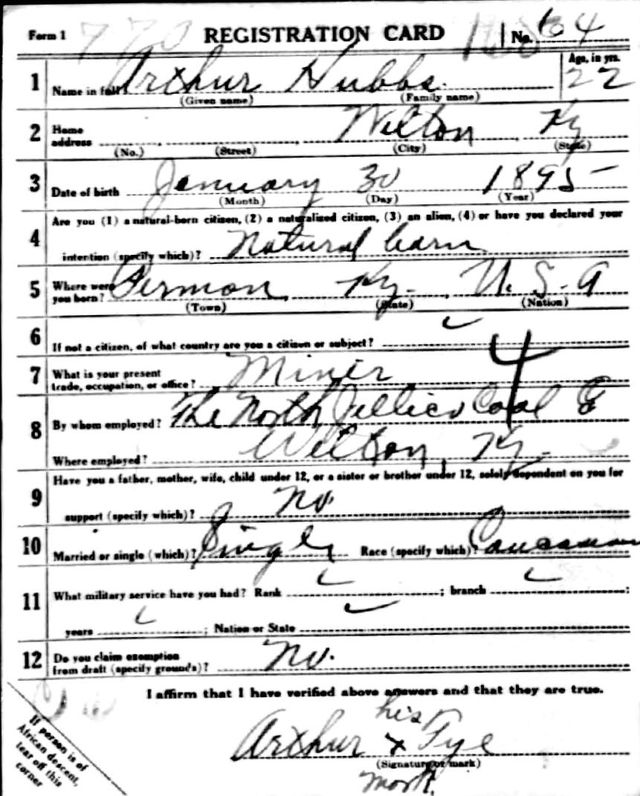 Form 1 770 REGISTRATION CARD No. 64
1 Name in full Arthur Hubbs Age, in yrs. 22
(Given name) (Family name)
2 Home address Wilton Ky
(No.) (Street) (City) (State)
3 Date of birth January 30 1895
(Month) (Day) (Year)
4 Are you (1) a natural-born citizen, (2) a naturalized citizen, (3) an alien, (4) or have you declared your
intention (specify which)? Natural barn
5 Where were you born? Permon, Ky. U. S. A
(Town) (State) (Nation)
6 If not a citizen, of what country are you a citizen or subject? ✓
7 What is your present trade, occupation, or office? Miner 4
8 By whom employed? The North Jellico Coal
Where employed? Wilton, Ky.
9 Have you a father, mother, wife, child under 12, or a sister or brother under 12, solely dependent on you for
support (specify which)? No
10 Married or single (which)? Single Race (specify which)? Caucasian
11 What military service have you had? Rank ✓ ; branch ✓ ;
years ✓ ; Nation or State ✓
12 Do you claim exemption from draft (specify grounds)? No.
I affirm that I have verified above answers and that they are true.
If person is of
African descent,
tear off this
corner
his
Arthur x Tye
(Signature or mark)
mark